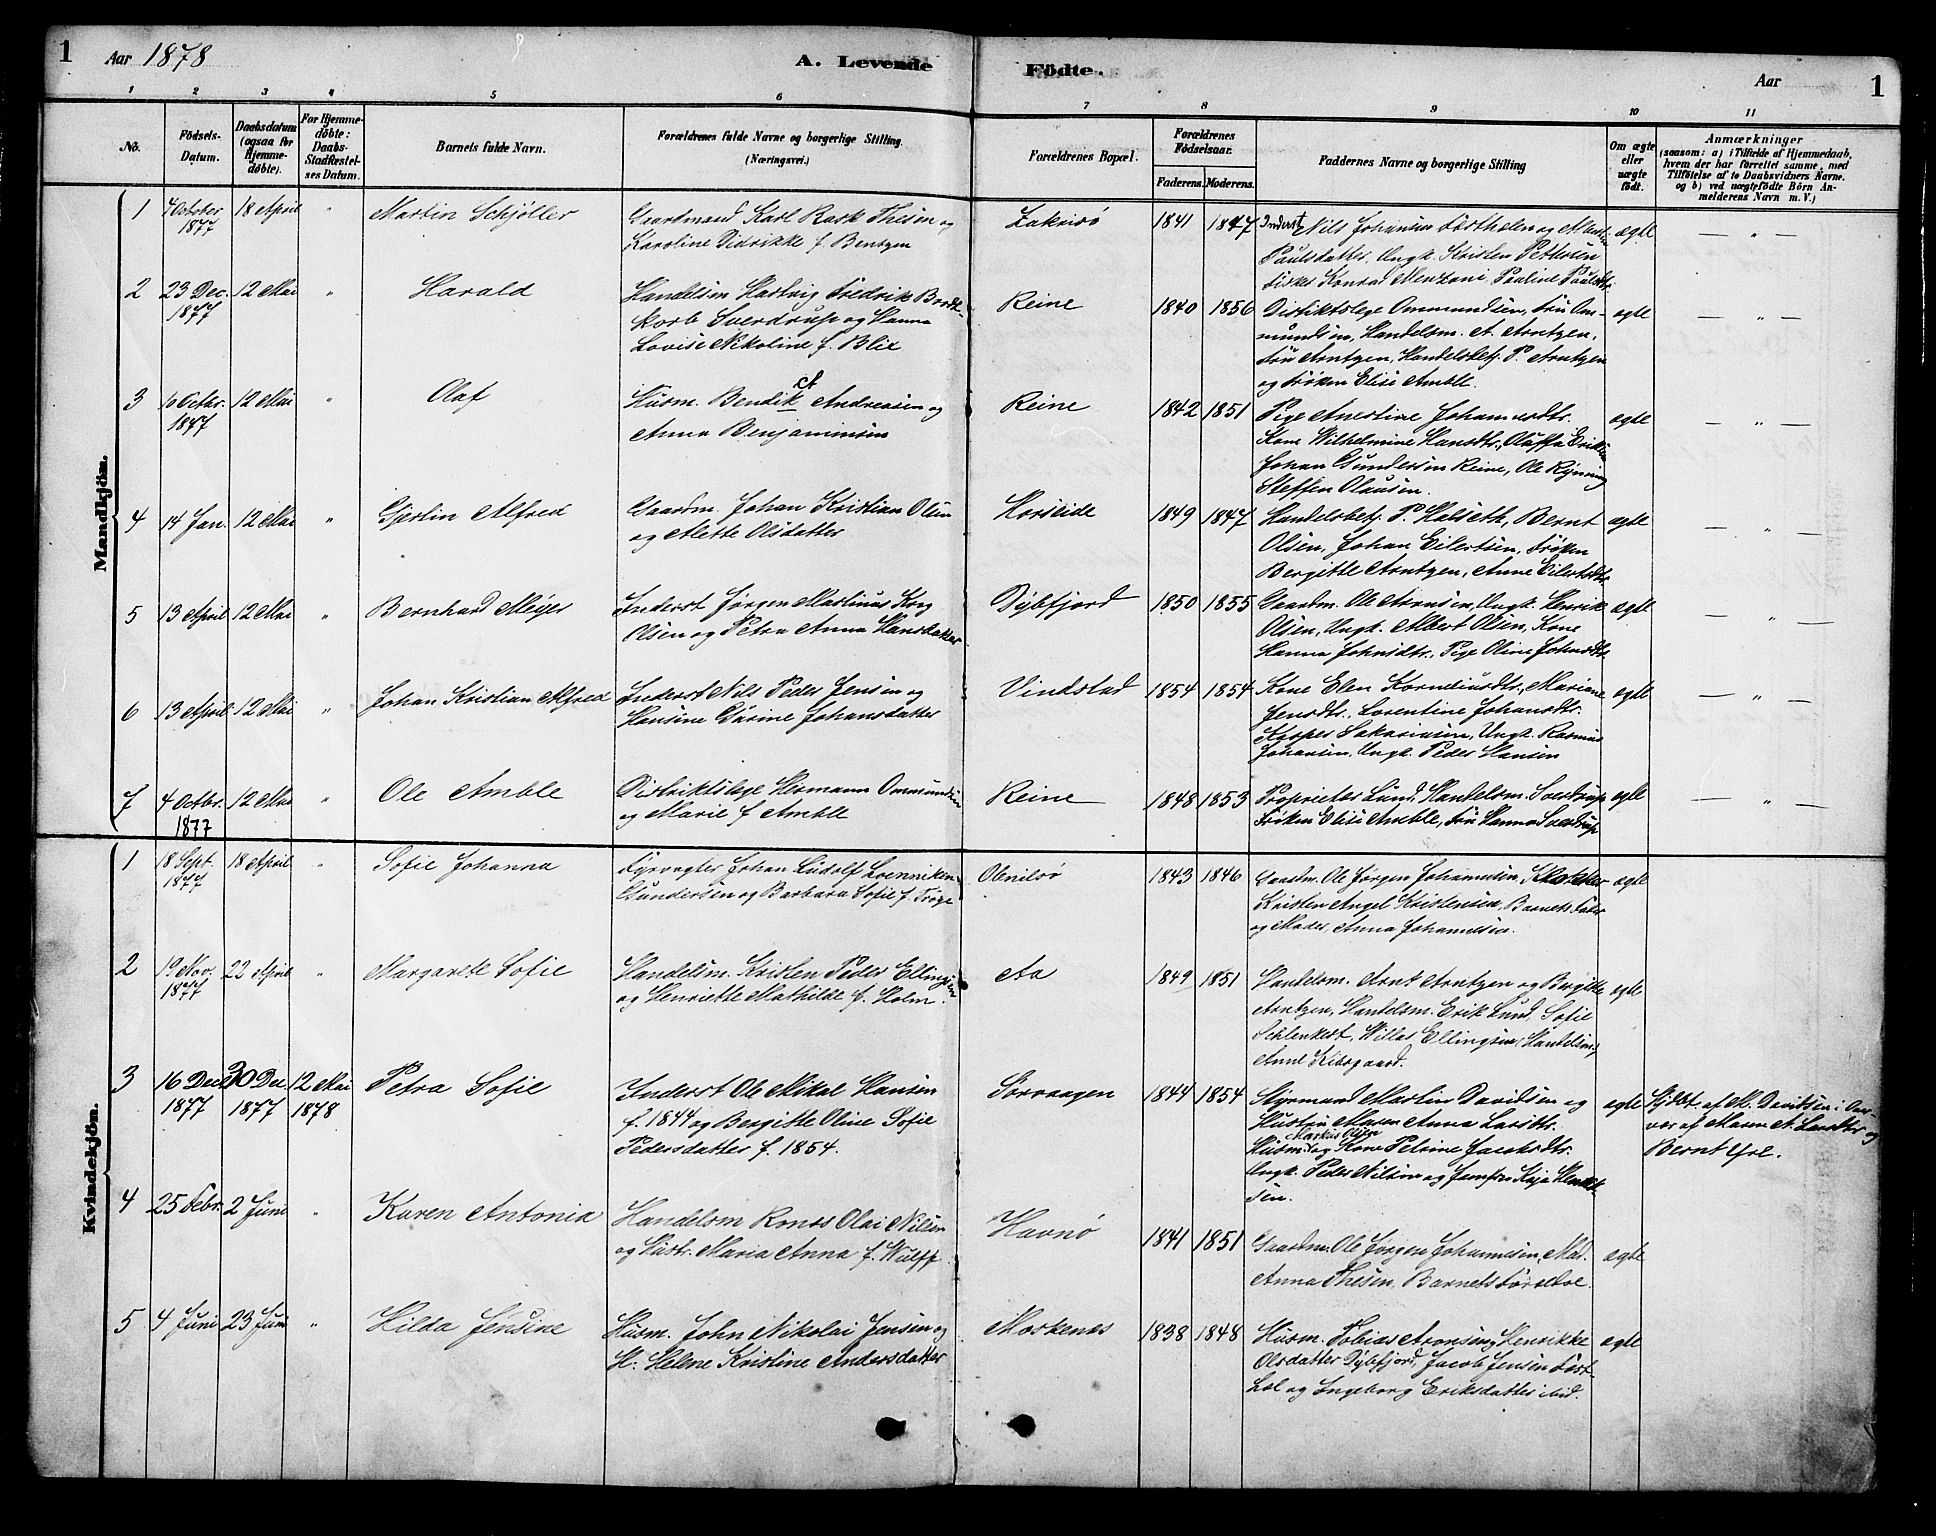 1 Aar 1878 A. Levende Födte. Aar 1
1 2 3 4 5 6 7 8 9 10 11
No.
Födsels-Datum.
Daabsdatum (ogsaa for Hjemme-döbte).
For Hjemme-döbte: Daabs-Stadfæstel-ses Datum.
Barnets fulde Navn.
Forældrenes fulde Navne og borgerlige Stilling. (Næringsvei.)
Forældrenes Bopæl.
Forældrenes Födselsaar.
Faderens. Moderens.
Faddernes Navne og borgerlige Stilling
Om ægte eller uægte födt.
Anmærkninger
(saasom: a) i Tilfælde af Hjemmedaab,
hvem der har forrettet samme, med
Tilföielse af to Daabsvidners Navne,
og b) ved uægtefödte Börn An-
melderens Navn m. V.)
Mandkjön.
1 4 October 1877 18 April " Martin Schjøller
Gaardmand Karl Rask Thesen og
Karoline Didrikke f. Bentzen
1841 1847
Inderst Nils Johansen
Paulsdatter, Ungk. Kristen Pettersen
Konrad Mentzoni, Pauline Paulsdtr.
ægte — " —
2 23 Dec. 1877 12 Mai " Harald
Handelsm Hartvig Fredrik Bordt-
korb Sverdrup og Hanna
Lovise Nikoline f. Blix
Reine 1840 1856
Distriktslæge Ommundsen, Fru Om-
mundsen, Handelsm. A. Arntzen,
Fru Arntzen, Handelsbetj. P. Arntzen
og Frøken Elise Amble.
ægte — " —
3 10 Octbr. 1877 12 Mai " Olaf
Husm. Bendikct Andreasen og
Anna Benjaminsen
Reine 1842 1851
Pige Anestine Johannesdtr.
Kone Wilhelmine Hansdtr., Oluffa
Johan Gundersen Reine, Ole Rejning
Steffen Olausen.
ægte — " —
4 14 Jan. 12 Mai " Gjertin Alfred
Gaardm. Johan Kristian Olsen
og Alette Olsdatter
Horseide 1849 1847
Handelsbetj. P. Halseth, Bernt
Olsen, Johan Eilertsen, Frøken
Bergitte Arntzen, Anne Eilertsdtr.
ægte — " —
5 13 April 12 Mai " Bernhard Meyer
Inderst Jørgen Martinus Krog
Olsen og Petra Anna Hansdatter
Dybfjord 1850 1855
Gaardm. Ole Arnesen, Ungk. Henrik
Olsen, Ungk. Albert Olsen, Kone
Hanna Johnsdtr., Pige Oline Johnsdtr.
ægte — " —
6 13 April 12 Mai " Johan Kristian Alfred
Inderst Nils Peder Jensen og
Hansine Gurine Johansdatter
Vindstad 1854 1854
Kone Elen Korneliusdtr., Mariane
Jensdtr., Lorentine Johansdtr.
Kasper Sakariasen, Ungk. Rasmus
Johansen, Ungk. Peder Hansen
ægte — " —
7 4 Octbr. 1877 12 Mai " Ole Amble
Distriktslæge Hermann Ommundsen
og Marie f. Amble
Reine 1848 1853
Proprietær Lund, Handelsm. Sverdrup
Frøken Elise Amble, Fru Hanna Sverdrup
ægte — " —
Kvindekjön.
1 18 Sept. 1877 18 April " Sofie Johanna
Fyrvogter Johan Ludolf Loennicken
Gundersen og Barbara Sofie f. Frøge
1843 1846
Gaardm. Ole Jørgen Johannesen, Klokker
Kristen Angel Kristensen, Barnets Fader
og Moder, Anna Johannesen.
ægte
2 19 Nov. 1877 22 April " Margarete Sofie
Handelsm. Kristen Peder Ellingsen
og Henriette Mathilde f. Holm.
Aa 1849 1851
Handelsm. Arnt Arntzen og Bergitte
Arntzen, Handelsm. Erik Lund, Sofie
Schlenkert, Willas Ellingsen, Handelsm.,
Anne Kiborgaard.
ægte
3 16 Dec 1877 30 Dec 1877 12 Mai 1878 Petra Sofie
Inderst Ole Mikal Hansen
f. 1844 og Bergitte Oline Sofie
Pedersdatter f. 1854.
Sørvaagen 1844 1854
Styrmand Martin Davidsen og
Hustru Maren Anna Larsdtr.
Husm. Markus Olsen og Kone Petrine Jacobsdtr.
Ungk. Peder Nilsen og Jomfru Kaja
sen.
ægte
Hjdbt. af M. Davidsen i Over-
vær af Maren A. Larsdtr. og
Bernt
4 25 Febr. 2 Juni " Karen Antonia
Handelsm Olai Nilsen
og Hustr. Maria Anna f. Wulff
Havnø 1841 1851
Gaardm. Ole Jørgen Johannesen, Mad.
Anna Thesen, Barnets Forældre.
ægte
5 4 Juni 23 Juni " Hilda Jensine
Husm. John Nikolai Jensen og
H. Helene Kristine Andersdatter
Moskenes 1838 1848
Husm. Tobias Aronsen, Henrikke
Olsdatter Dybfjord, Jacob Jensen
og Ingeborg Eriksdatter ibid.
ægte